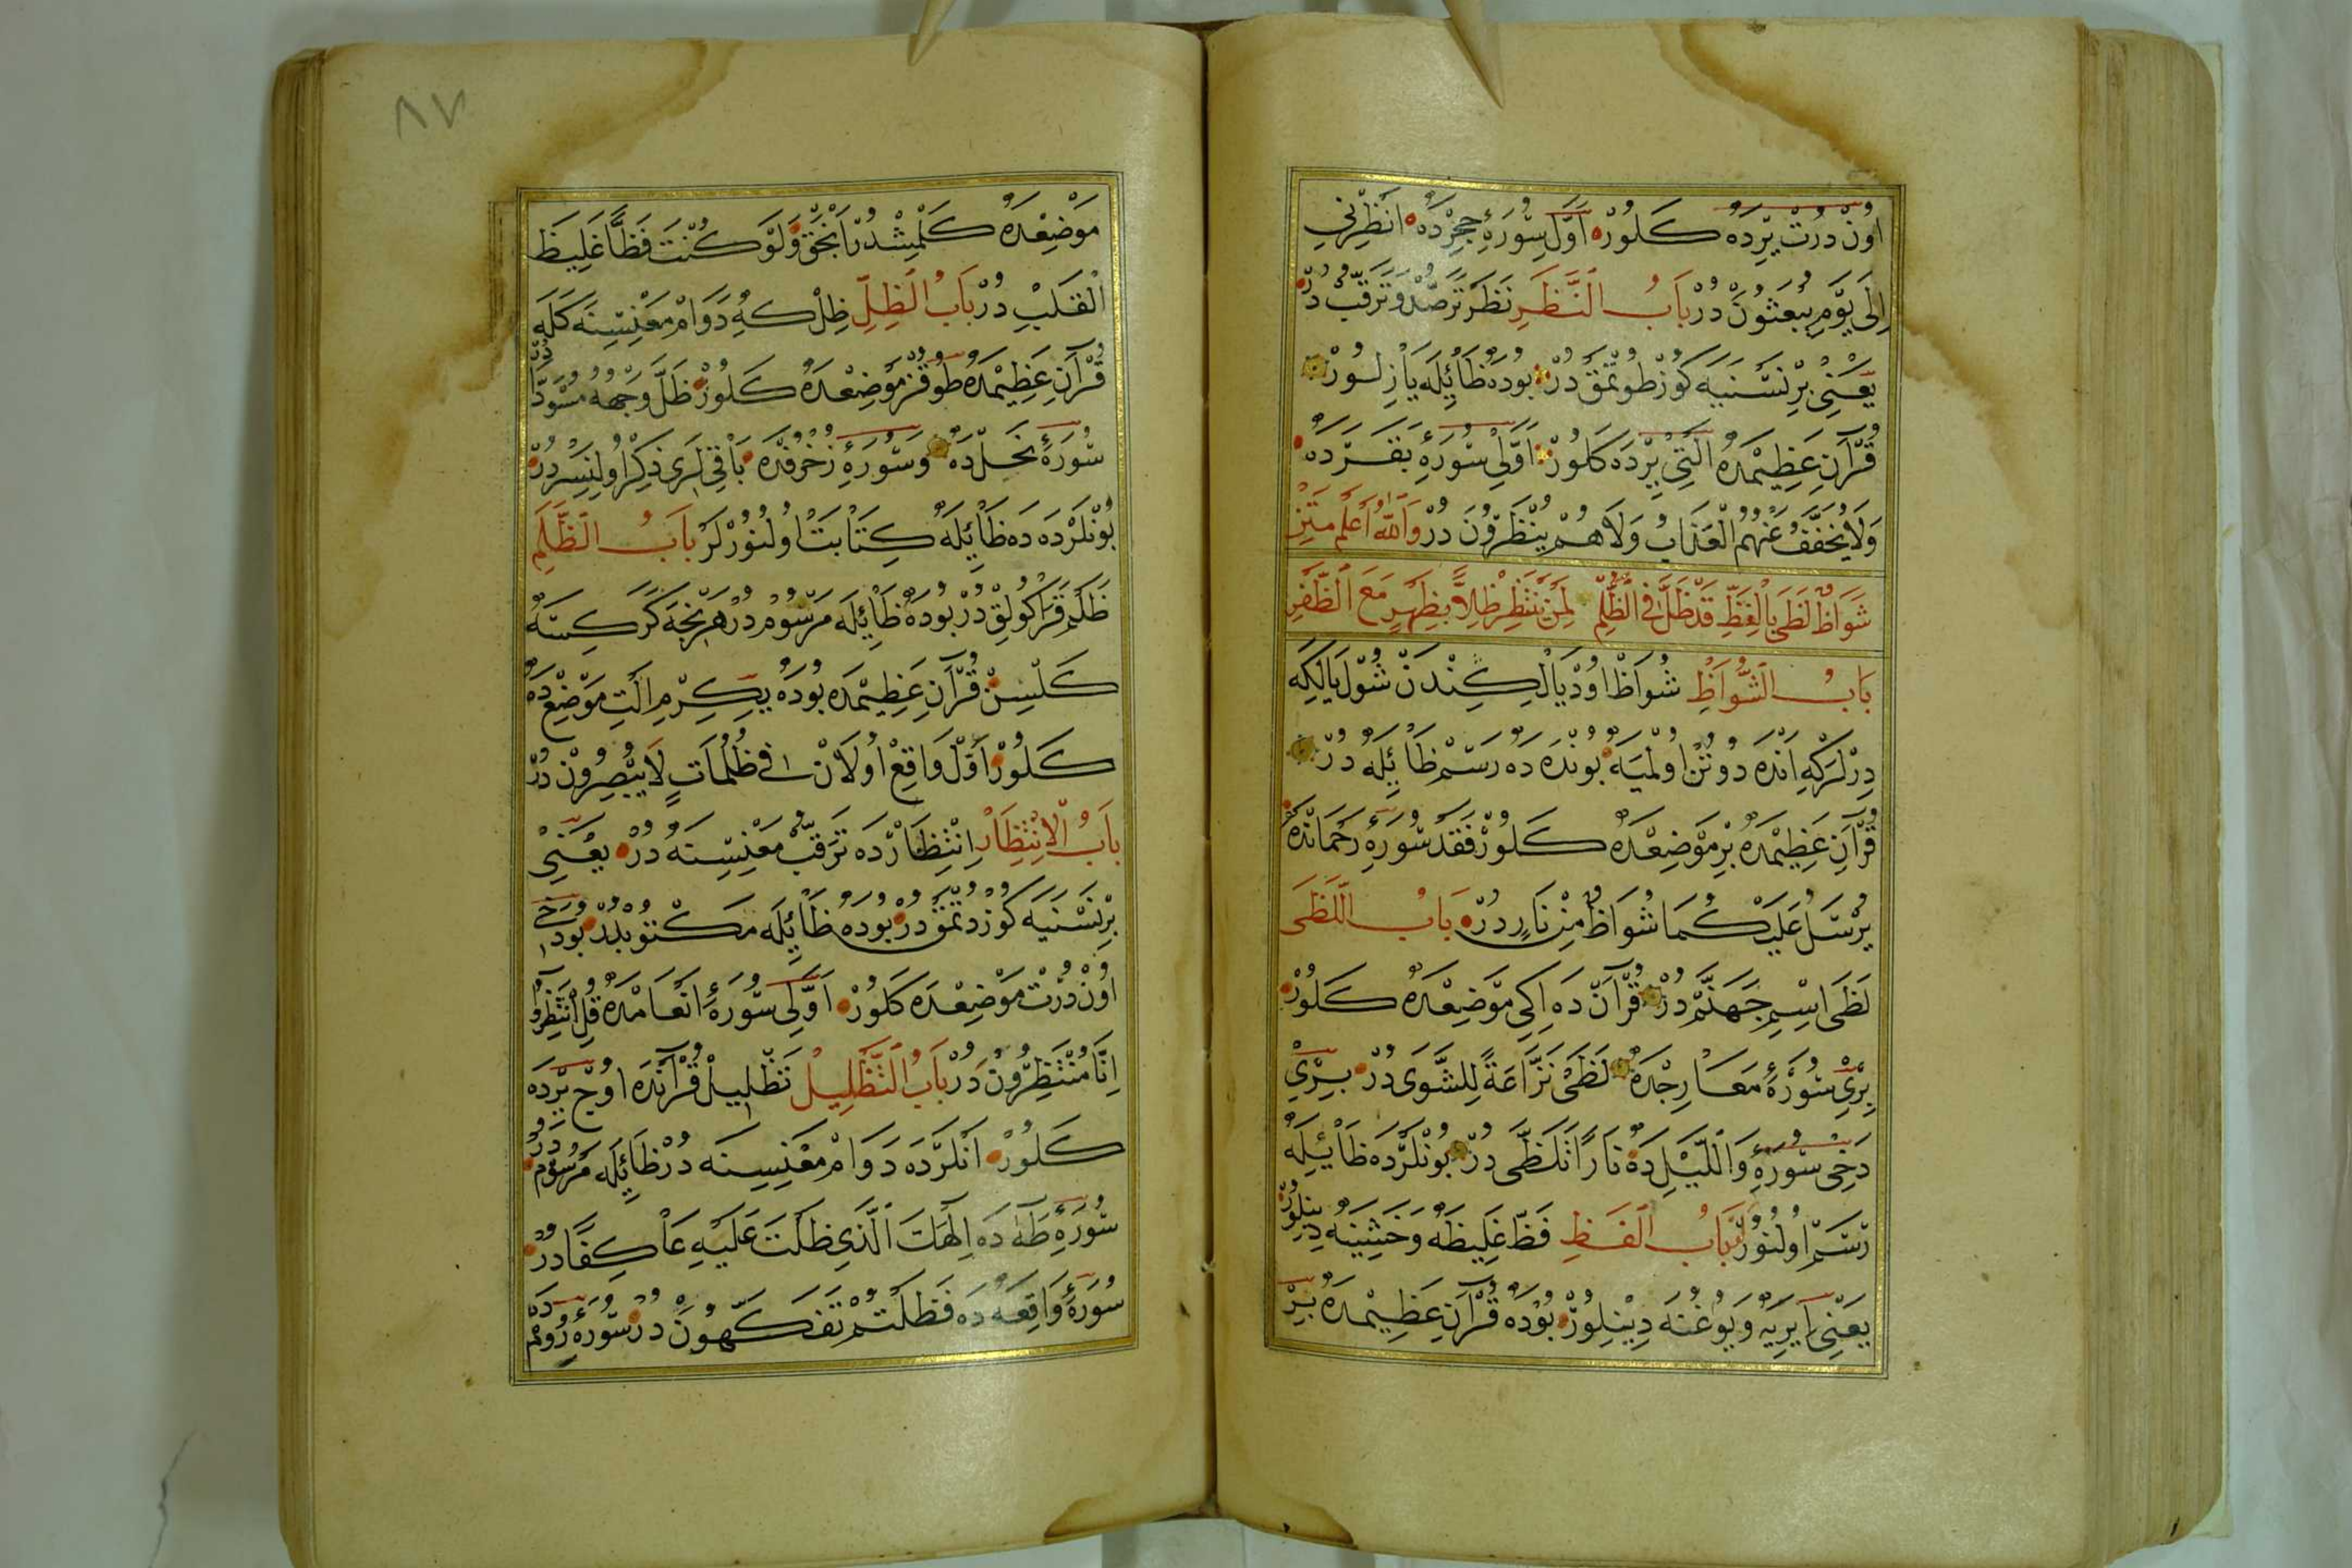 اون درت يرده كلور اول سورۀ حجرده انظرني
الى يوم يبعثون در باب النظر نظر ترصد و ترقب در
يعني بر نسنيه كوز طوتمق در بوده ظائيله يازلور
قرآن عظيمده التي يرده كلور اولى سورۀ بقرده
ولا يخفف عنهم العذاب ولا هم ينظرون در والله اعلم متن
شواظ لظى بالفظ قد ظل في الظلم لمن ينتظر ظلا بظهر مع الظفر
باب الشواظ شواظ اود يالكندن شول يالكه
درلركه انده دوتن اولميه بونده ده رسم ظائيله در
قرآن عظيمده بر موضعده كلور فقد سورۀ رحمانده كه
يرسل عليكما شواظ من نار در باب اللظى
لظى اسم جهنم در قرآن ده اكى موضعده كلور
بري سورۀ معارجده لظى نزاعة للشوى در بري
دخى سورۀ والليل ده نارا تلظى در بونلرده ظائيله
رسم اولنور باب الفظ فظ غليظه و خشينه دينلور
يعني ايريه و يوغنه دينلور بوده قرآن عظيمده بر
٨٧
موضعده كلمشدر انجق ولو كنت فظا غليظ
القلب در باب الظل ظل كه دوام معنسنه كله
قرآن عظيمده طوقز موضعده كلور ظل وجهه مسودا در
سورۀ نحل ده و سورۀ زخرفده باقي لري ذكر اولنسردر
بونلرده ده ظائيله كتابت اولنورلر باب الظلم
ظلم قراكولق در بوده ظائيله مرسوم در هر نجه كر كسه
كلسن قرآن عظيمده بوده يكرم التي موضعده
كلور اول واقع اولان في ظلمات لا يبصرون در
باب الانتظار انتظارده ترقب معنسنه در يعني
بر نسنيه كوز دتمق در بوده ظائيله مكتوبدر بو دخى
اون درت موضعده كلور اولى سورۀ انعامده قل انتظروا
انا منتظرون در باب التظليل تظليل قرآنده اوچ يرده
كلور انلرده دوام معنيسنه در ظائيله مرسوم در
سورۀ طه ده الهك الذي ظلت عليه عاكفا در
سورۀ واقعه ده فظلتم تفكهون در سورۀ رومده